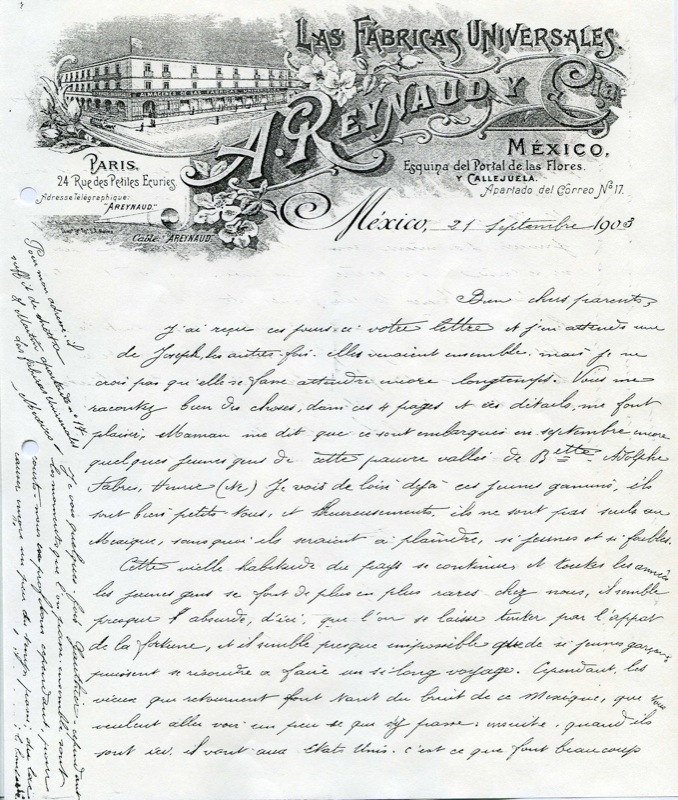 LAS FÁBRICAS UNIVERSALES.
ALMACENES DE LAS FABRICAS
A. REYNAUD Y Cia
PARIS.
24 Rue des Petites Ecuries
Adresse Télégraphique:
"AREYNAUD."
Cable "AREYNAUD"
MÉXICO,
Esquina del Portal de las Flores.
Y CALLEJUELA.
Apartado del Correo Nº 17.
México, 21 Septembre 1903
Bien chers parents,
J'ai reçu ces jours-ci votre lettre et j'en attends une
de Joseph, les autres fois elles venaient ensemble. mais je ne
crois pas qu'elle se fasse attendre encore longtemps. Vous me
racontez bien des choses, dans ces 4 pages et ces détails, me font
plaisir, Maman me dit que se sont embarqués en septembre encore
quelques jeunes gens de cette pauvre vallée de Bette Adolphe
Fabres, (Ne) Je vois de loin déjà ces jeunes gamins, ils
sont bien petits tous, et heureusement, ils ne sont pas seuls au
Mexique, sans quoi ils seraient à plaindre, si jeunes et si faibles.
Cette vieille habitude du pays se continue, et toutes les années
les jeunes gens se font de plus en plus rares chez nous, il semble
presque l'absurde, d'ici, que l'on se laisse tenter par l'appat
de la fortune, et il semble presque impossible que de si jeunes garçons
puissent se résoudre a faire un si long voyage. Cependant, les
vieux qui retournent font tant du bruit de ce Mexique, que tous
veulent aller voir un peu ce qui s'y passe. ensuite, quand ils
sont ici, il vont aux Etats Unis. c'est ce que font beaucoup
Pour mon adresse, il
suffit de mettre
apartado nº 17
Mexico
Je vois quelques fois Gauthier, cependant
les moments que l'on passe ensemble sont
courts nous en profitons cependant pour
causer un peu du temps passé